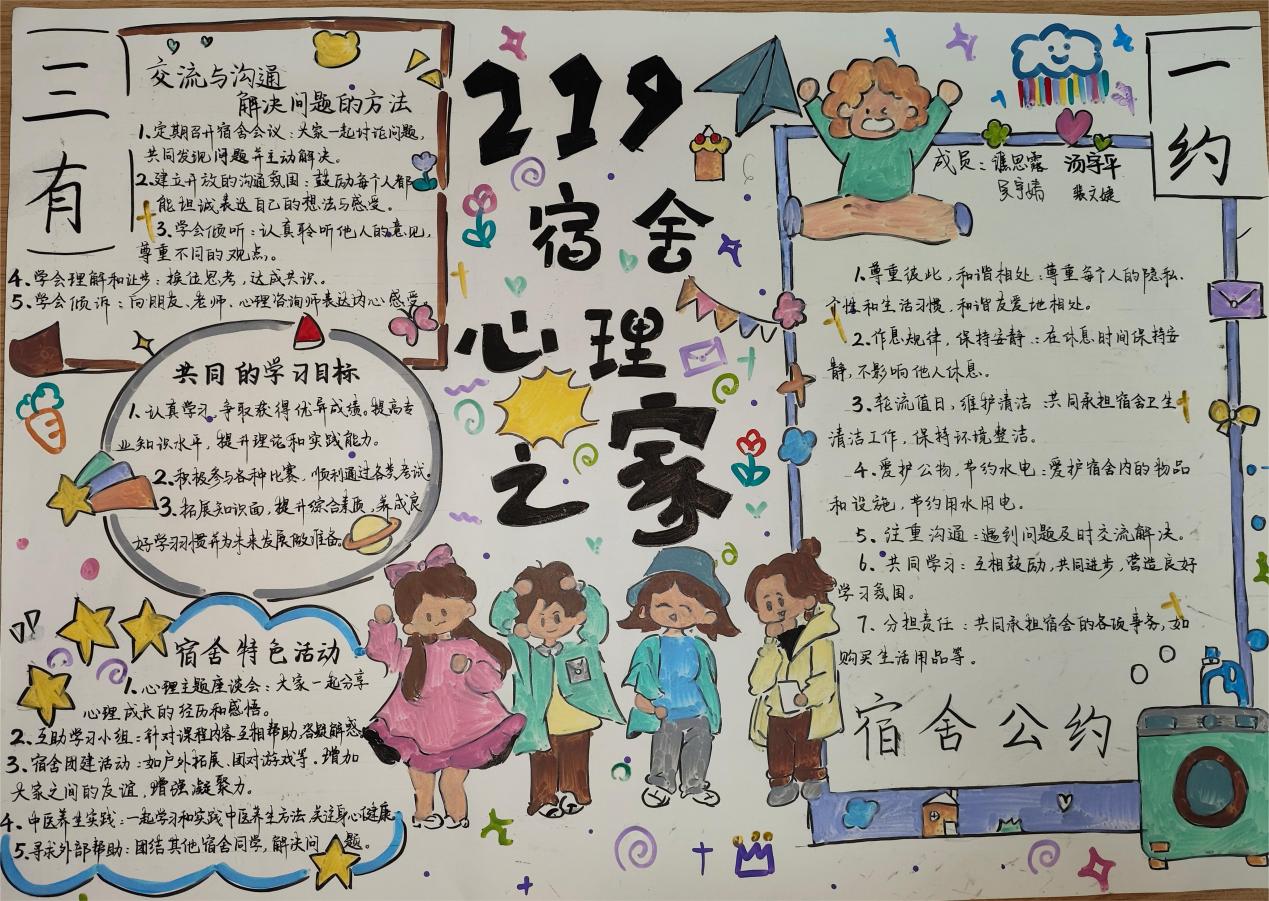 三有
交流与沟通
解决问题的方法
1、定期召开宿舍会议：大家一起讨论问题，
共同发现问题并主动解决。
2、建立开放的沟通氛围：鼓励每个人都
能坦诚表达自己的想法与感受。
3、学会倾听：认真聆听他人的意见，
尊重不同的观点。
4、学会理解和让步：换位思考，达成共识。
5、学会倾诉：向朋友、老师、心理咨询师表达内心感受。
共同的学习目标
1、认真学习，争取获得优异成绩。提高专
业知识水平，提升理论和实践能力。
2、积极参与各种比赛，顺利通过各类考试。
3、拓展知识面，提升综合素质，养成良
好学习习惯并为未来发展做准备。
宿舍特色活动
1、心理主题座谈会：大家一起分享
心理成长的经历和感悟。
2、互助学习小组：针对课程内容互相帮助，答疑解惑
3、宿舍团建活动：如户外拓展、团对游戏等。增加
大家之间的友谊，增强凝聚力。
4、中医养生实践：一起学习和实践中医养生方法，关注身心健康。
5、寻求外部帮助：团结其他宿舍同学，解决问题。
219
宿舍
心理
之家
一约
成员：思霖 汤宇平
吴宇婧 裴文婕
1、尊重彼此，和谐相处：尊重每个人的隐私、
个性和生活习惯，和谐友爱地相处。
2、作息规律，保持安静：在休息时间保持安
静，不影响他人休息。
3、轮流值日，维护清洁 共同承担宿舍卫生
清洁工作，保持环境整洁。
4、爱护公物，节约水电：爱护宿舍内的物品
和设施，节约用水用电。
5、注重沟通：遇到问题及时交流解决。
6、共同学习：互相鼓励，共同进步，营造良好
学习氛围。
7、分担责任：共同承担宿舍的各项事务，如
购买生活用品等。
宿舍公约